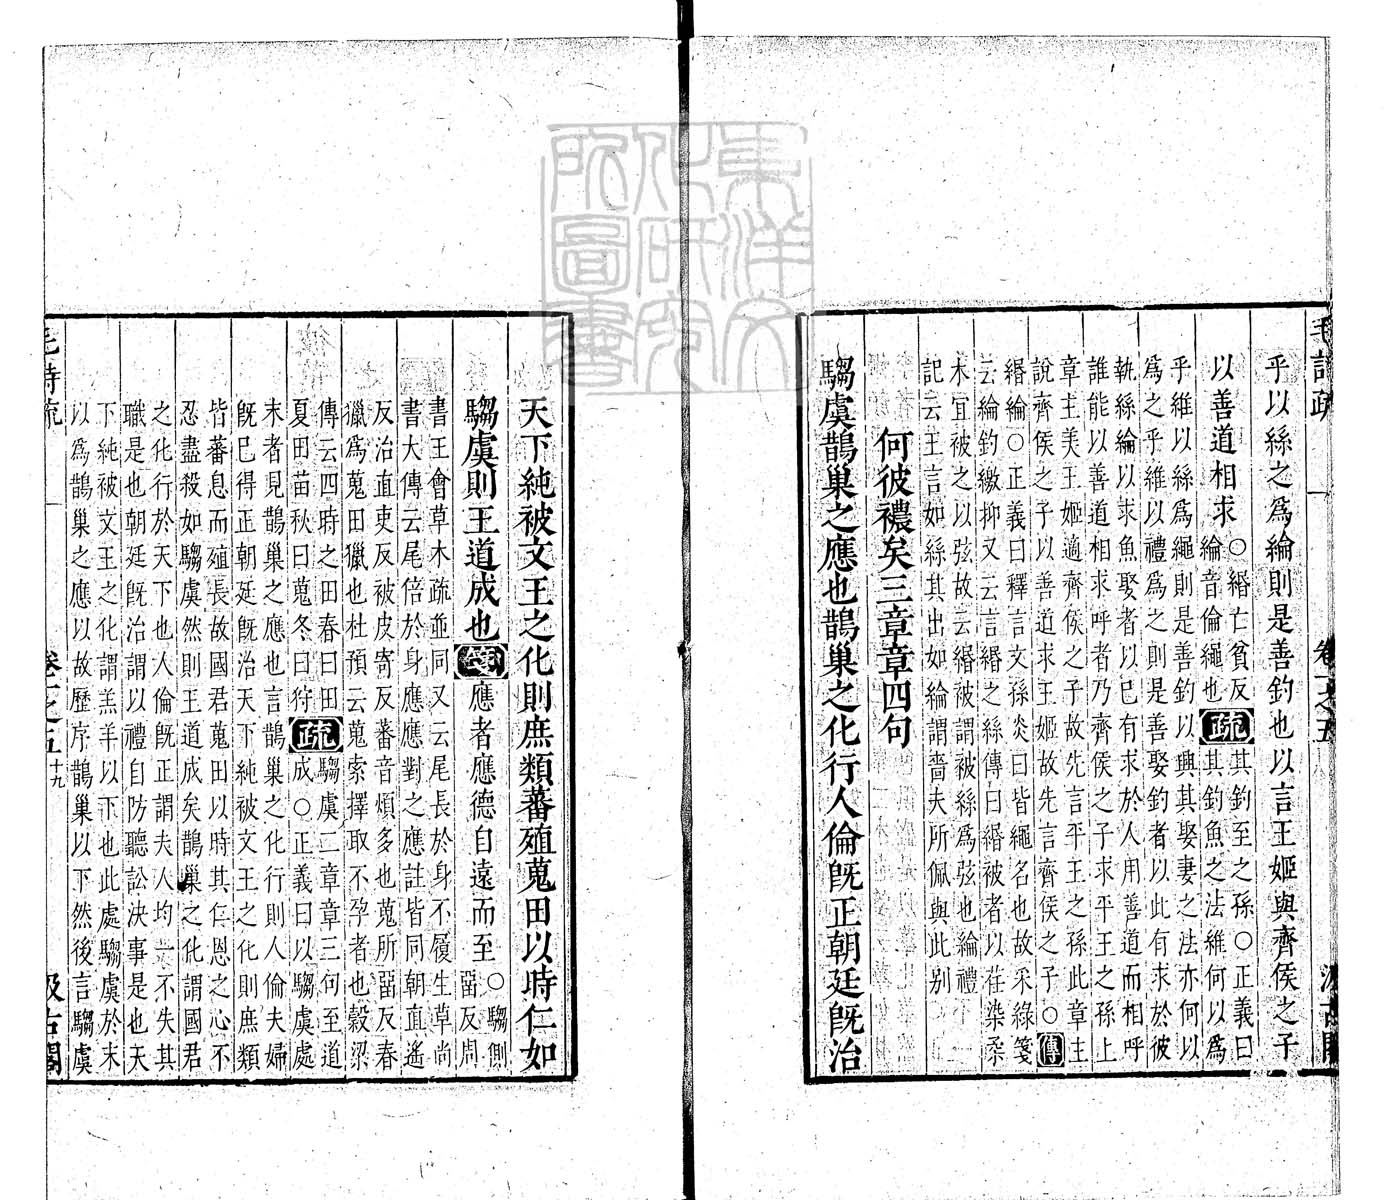 毛詩疏 卷一之五 汲古閣
乎以絲之為綸則是善釣也以言王姬與齊侯之子
以善道相求○緡亡貧反
綸音倫繩也疏其釣至之孫○正義曰
其釣魚之法維何以為
乎維以絲為繩則是善釣以興其娶妻之法亦何以
為之乎維以禮為之則是善娶釣者以此有求於彼
執絲綸以求魚娶者以已有求於人用善道而相呼
誰能以善道相求呼者乃齊侯之子求平王之孫上
章主美王姬適齊侯之子故先言平王之孫此章主
說齊侯之子以善道求王姬故先言齊侯之子○傳
緡綸○正義曰釋言文孫炎曰皆繩名也故采綠箋
云綸釣繳抑又云言緡之絲傳曰緡被者以荏染柔
木宜被之以弦故云緡被謂被絲為弦也綸禮
記云王言如絲其出如綸謂嗇夫所佩與此别
何彼襛矣三章章四句
騶虞鵲巢之應也鵲巢之化行人倫旣正朝廷旣治
天下純被文王之化則庶類蕃殖蒐田以時仁如
騶虞則王道成也箋應者應德自遠而至○騶側
畱反周
書王會草木疏並同又云尾長於身不履生草尚
書大傳云尾倍於身應應對之應註皆同朝直遙
反治直吏反被皮寄反蕃音煩多也蒐所畱反春
獵為蒐田獵也杜預云蒐索擇取不孕者也穀梁
傳云四時之田春曰田
夏曰苗秋曰蒐冬曰狩疏騶虞二章章三句至道
成○正義曰以騶虞處
末者見鵲巢之應也言鵲巢之化行則人倫夫婦
旣已得正朝廷旣治天下純被文王之化則庶類
皆蕃息而殖長故國君蒐田以時其仁恩之心不
忍盡殺如騶虞然則王道成矣鵲巢之化謂國君
之化行於天下也人倫旣正謂夫人均一不失其
職是也朝廷旣治謂以禮自防聽訟決事是也天
下純被文王之化謂羔羊以下也此處騶虞於末
以為鵲巢之應以故歷序鵲巢以下然後言騶虞
毛詩疏 卷一之五 十九 汲古閣